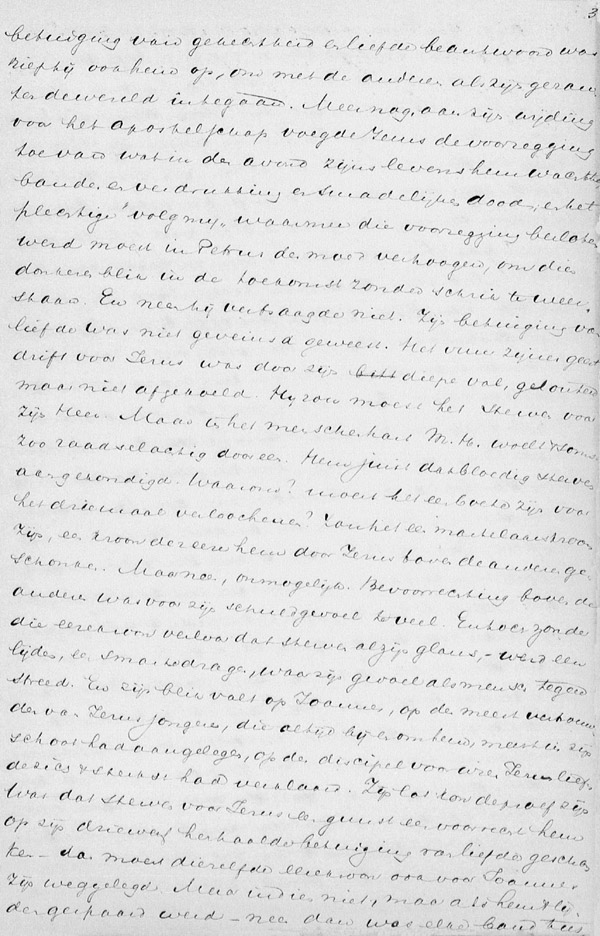 3
betuiging van gehechtheid en liefde beantwoord was
riep hij ook hem op, om met de anderen als zijn gezan-
ten de wereld in te gaan. Meer nog, aan zijn wijding
voor het apostelschap voegde Jezus de voorzegging
toe van wat in den avond zijns levens hem wachtte
banden en verdrukking en smadelijken dood, en het
plechtige "volg mij" waarmee die voorzegging besloten
werd moest in Petrus den moed verhoogen, om dien
donkeren blik in de toekomst zonder schrik te weer-
staan. En neen hij versaagde niet. Zijn betuiging van
liefde was niet geveinsd geweest. Het vuur zijner geest
drift voor Jezus was door zijn diepe val gelouterd
maar niet afgekoeld. Hij zou moest het sterven voor
zijn Heer. Maar is het menschenhart M. H. wordt soms
zoo raadselachtig dooreen. Hem juist dat bloedig sterven
aangekondigd. Waarom? moest het een boete zijn voor
het driemaal verloochenen? Zou het een martelaarskroon
zijn, een kroon der eere hem door Jezus boven de anderen ge-
schonken. Maar nee, onmogelijk. Bevoorrechting boven de
anderen was voor zijn schuldgevoel te veel. En toch zonder
die eerekroon verloor dat sterven al zijn glans, – werd een
lijden, een smart te dragen, waar zijn gevoel als mensch tegen
streed. En zijn blik valt op Joannes, op den meest vertrouw-
de van Jezus jongeren, die altijd bij en om hem, meest in zijn
schoot had aangelegen, op den discipel voor wien Jezus lief-
de zich 't sterkst had verklaard. Zijn lot zou de proef zijn
Was dat sterven voor Jezus een gunst een voorrecht hem
op zijn driewerf herhaalde betuiging van liefde geschon
ken – dan moest diezelfde eerekroon ook voor Joannes
zijn weggelegd. Maar indien niet, maar als hem 't lij-
den gespaard werd – neen dan was elke band tus